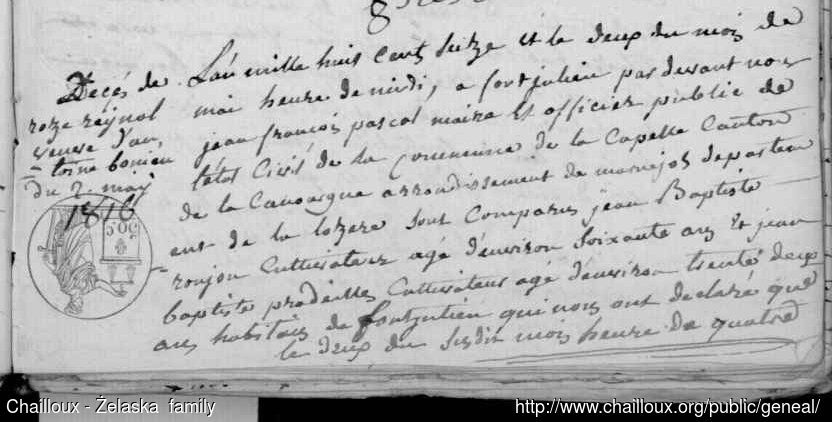 Décés de
roze reynal
veuve d'an
-toine bonieu
du 2. mai
1816
50 C
L'an mille huit cent seize et le deux du mois de
mai heure de midi, a fontjulien par devant nous
jean françois pascal maire et officier public de
l'état Civil de la Commune de la Capelle Canton
de la Canourgue arrondissement de marvejols departem
ent de la lozere sont Comparus jean Baptiste
roujon Cultivateur agé d'environ soixante ans et jean
baptiste pradeilles Cultivateur agé d'environ trente deux
ans habitans de fontjulien qui nous ont declaré que
le deux du susdit mois heure de quatre
Chailloux - Żelaska family
http://www.chailloux.org/public/geneal/